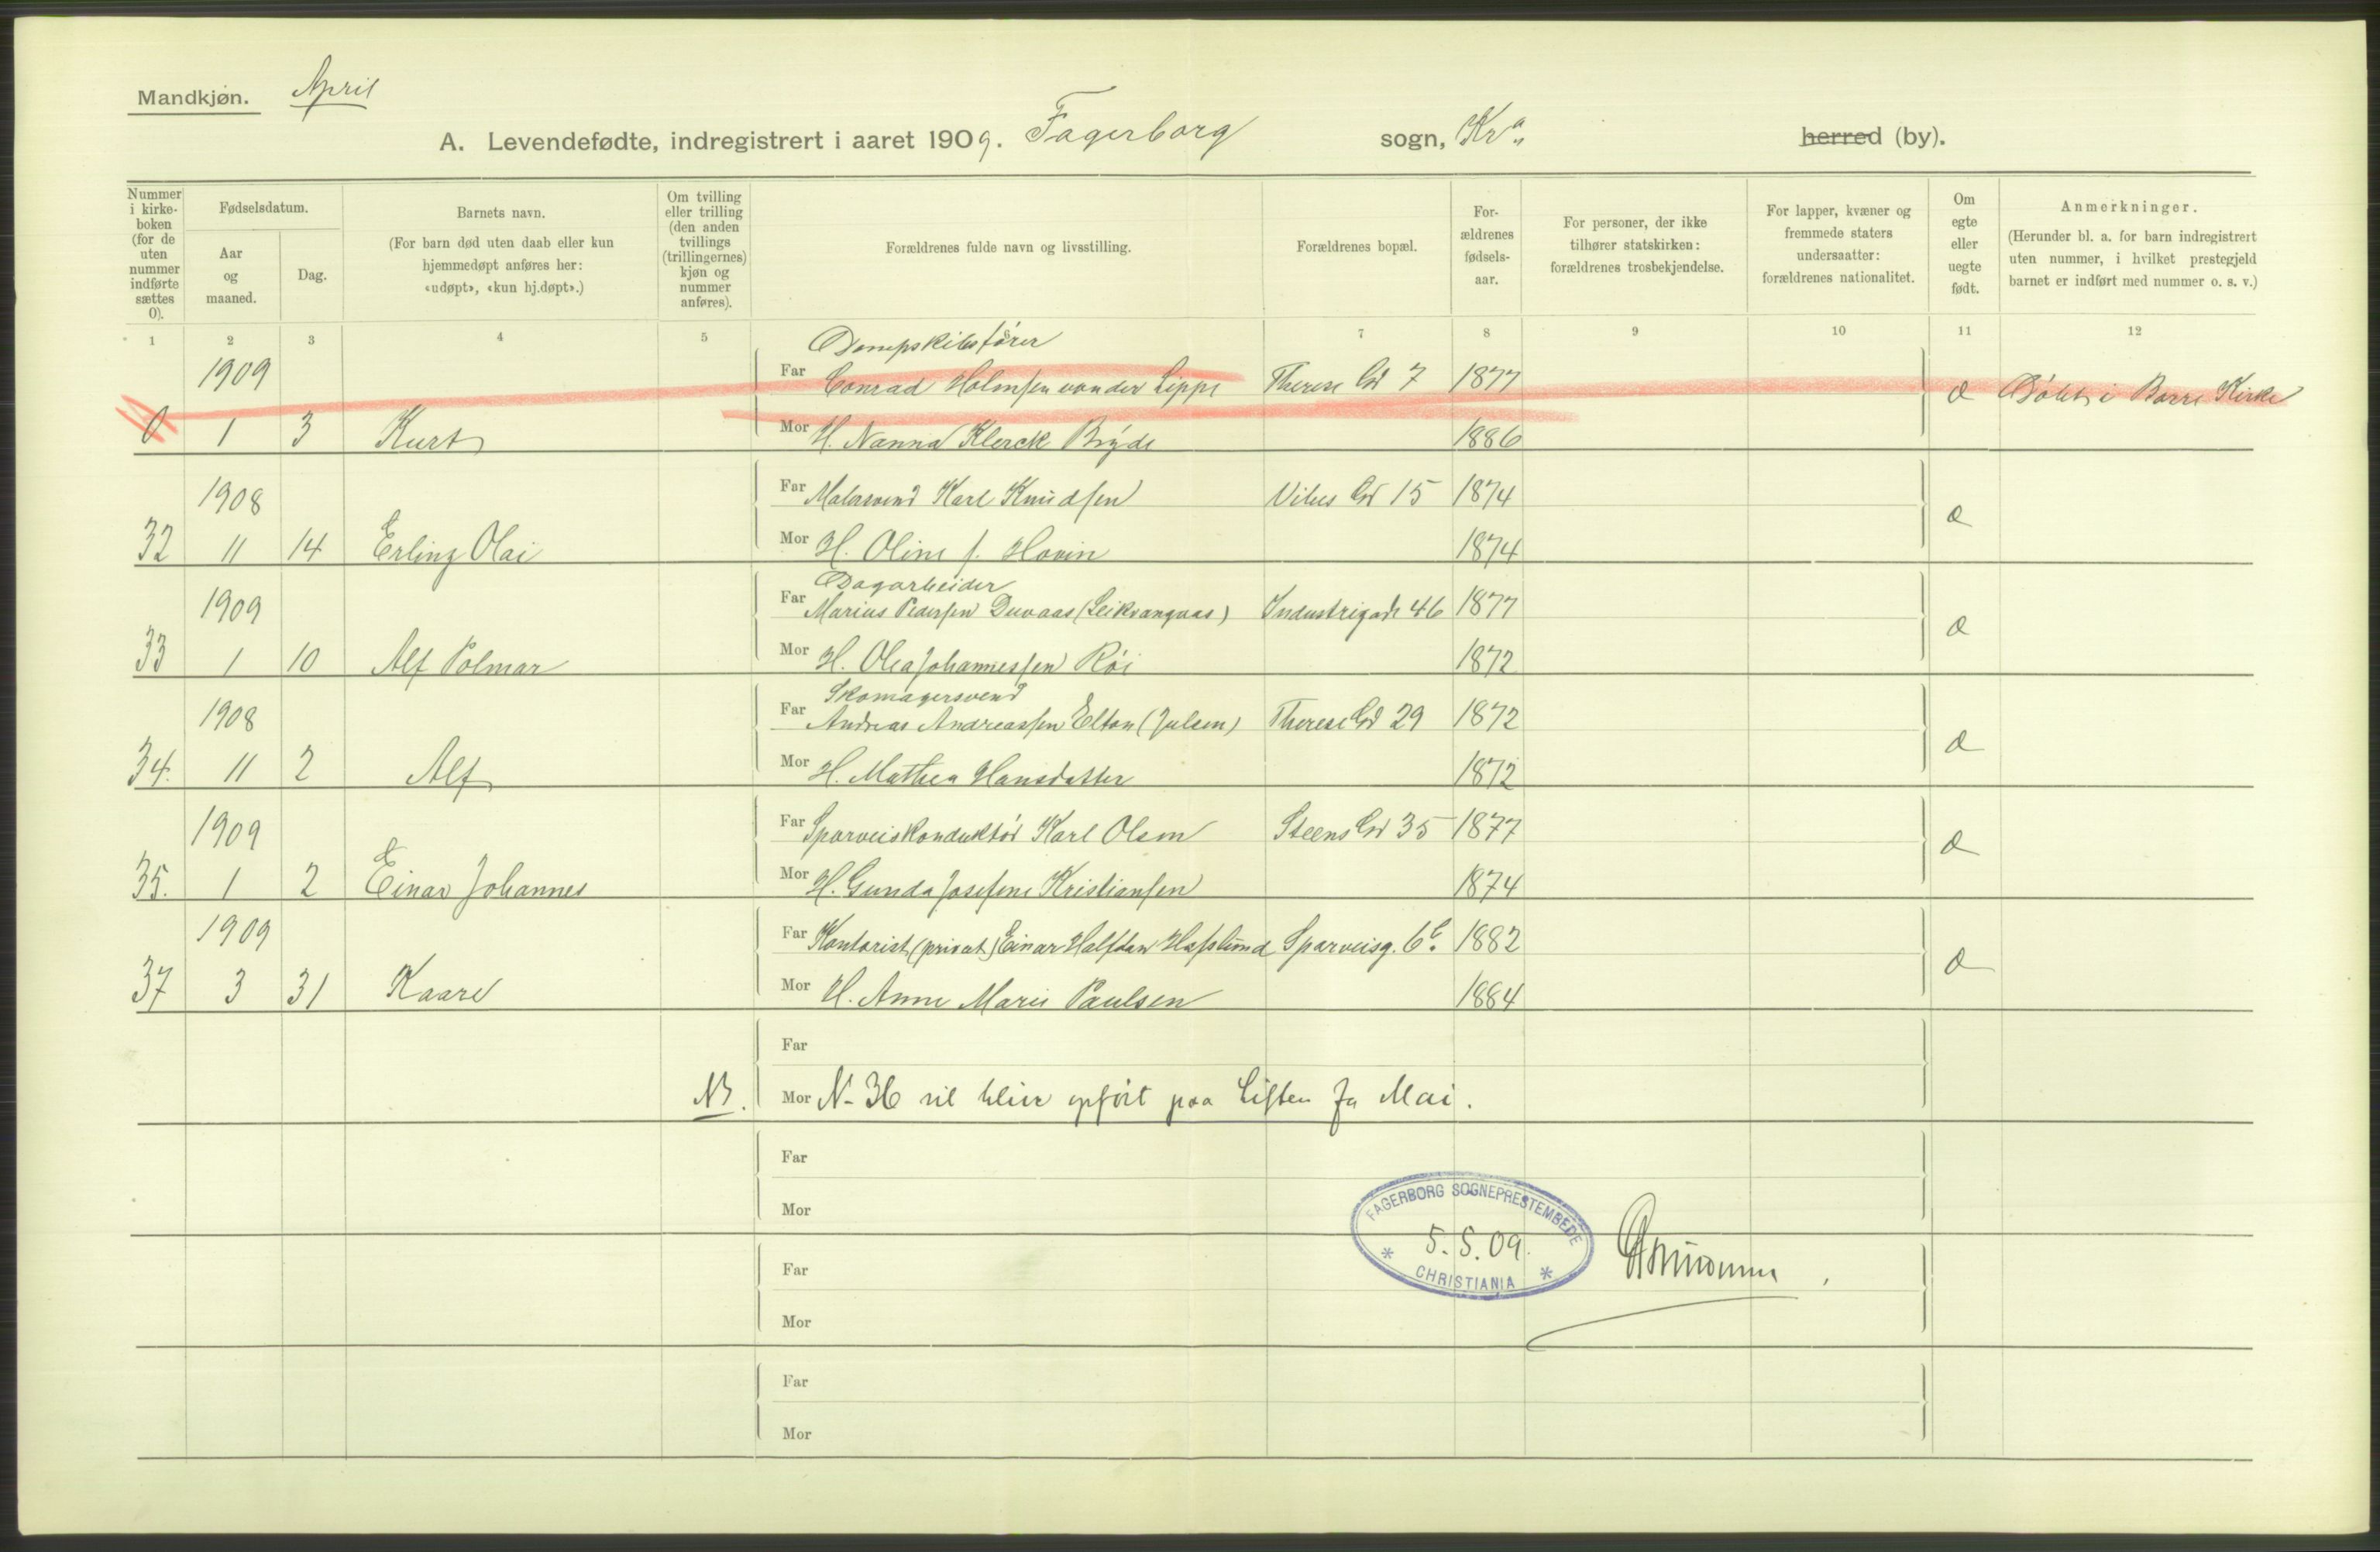 Mandkjøn. April
A. Levendefødte, indregistrert i aaret 1909. Fagerborg sogn, Kr.a herred (by).
Nummer i kirke-boken (for de uten nummer indførte sættes 0).
Fødselsdatum.
Aar og maaned.
Dag.
Barnets navn.
(For barn død uten daab eller kun hjemmedøpt anføres her: «udøpt», «kun hj.døpt».)
Om tvilling eller trilling (den anden tvillings (trillingernes) kjøn og nummer anføres).
Forældrenes fulde navn og livsstilling.
Forældrenes bopæl.
For-ældrenes fødsels-aar.
For personer, der ikke tilhører statskirken: forældrenes trosbekjendelse.
For lapper, kvæner og fremmede staters undersaatter: forældrenes nationalitet.
Om egte eller uegte født.
Anmerkninger.
(Herunder bl. a. for barn indregistrert uten nummer, i hvilket prestegjeld barnet er indført med nummer o. s. v.)
1 2 3 4 5 6 7 8 9 10 11 12
Dampskibsfører
1909 Far Conrad Holmsen von der Lippe Therese Gd 7 1877 Døbt i Borre Kirke
0 1 3 Kurt Mor H. Nanna Klerck Bryde 1886
1908 Far Malersvend Karl Knudsen Vibes Gd 15 1874
32 11 14 Erling Olai Mor H. Oline f. Hovin 1874
Dagarbeider
1909 Far Marius Pedersen Duvaas (Leikvangvas) Industrigade 46 1877
33 1 10 Alf Polmar Mor H. Olea Johannessen Röi 1872
Skomagersvend
1908 Far Andreas Andreassen Elton (Julsen) Therese Gd 29 1872
34. 11 2 Alf Mor H. Mathea Hansdatter 1872
1909 Far Sporveiskonduktör Karl Olsen Steens Gd 35 1877
35. 1 2 Einar Johannes Mor H. Gunda Josefine Kristiansen 1874
1909 Far Kontorist (privat) Einar Halfdan Hasslund Sporveisg. 6c. 1882
37 3 31 Kaare Mor H. Anne Marie Paulsen 1884
Far
NB. Mor N- 36 vil blive opfört paa Listen for Mai.
Far
Mor
FAGERBORG SOGNEPRESTEMBEDE
5.5.09.
CHRISTIANIA
Far
Mor
Far
Mor